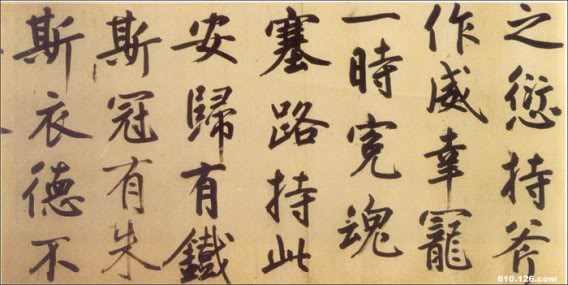 之愆持斧
作威幸寵
一時寃魂
塞路持此
安歸有鐵
斯冠有朱
斯衣德不
610.126.com